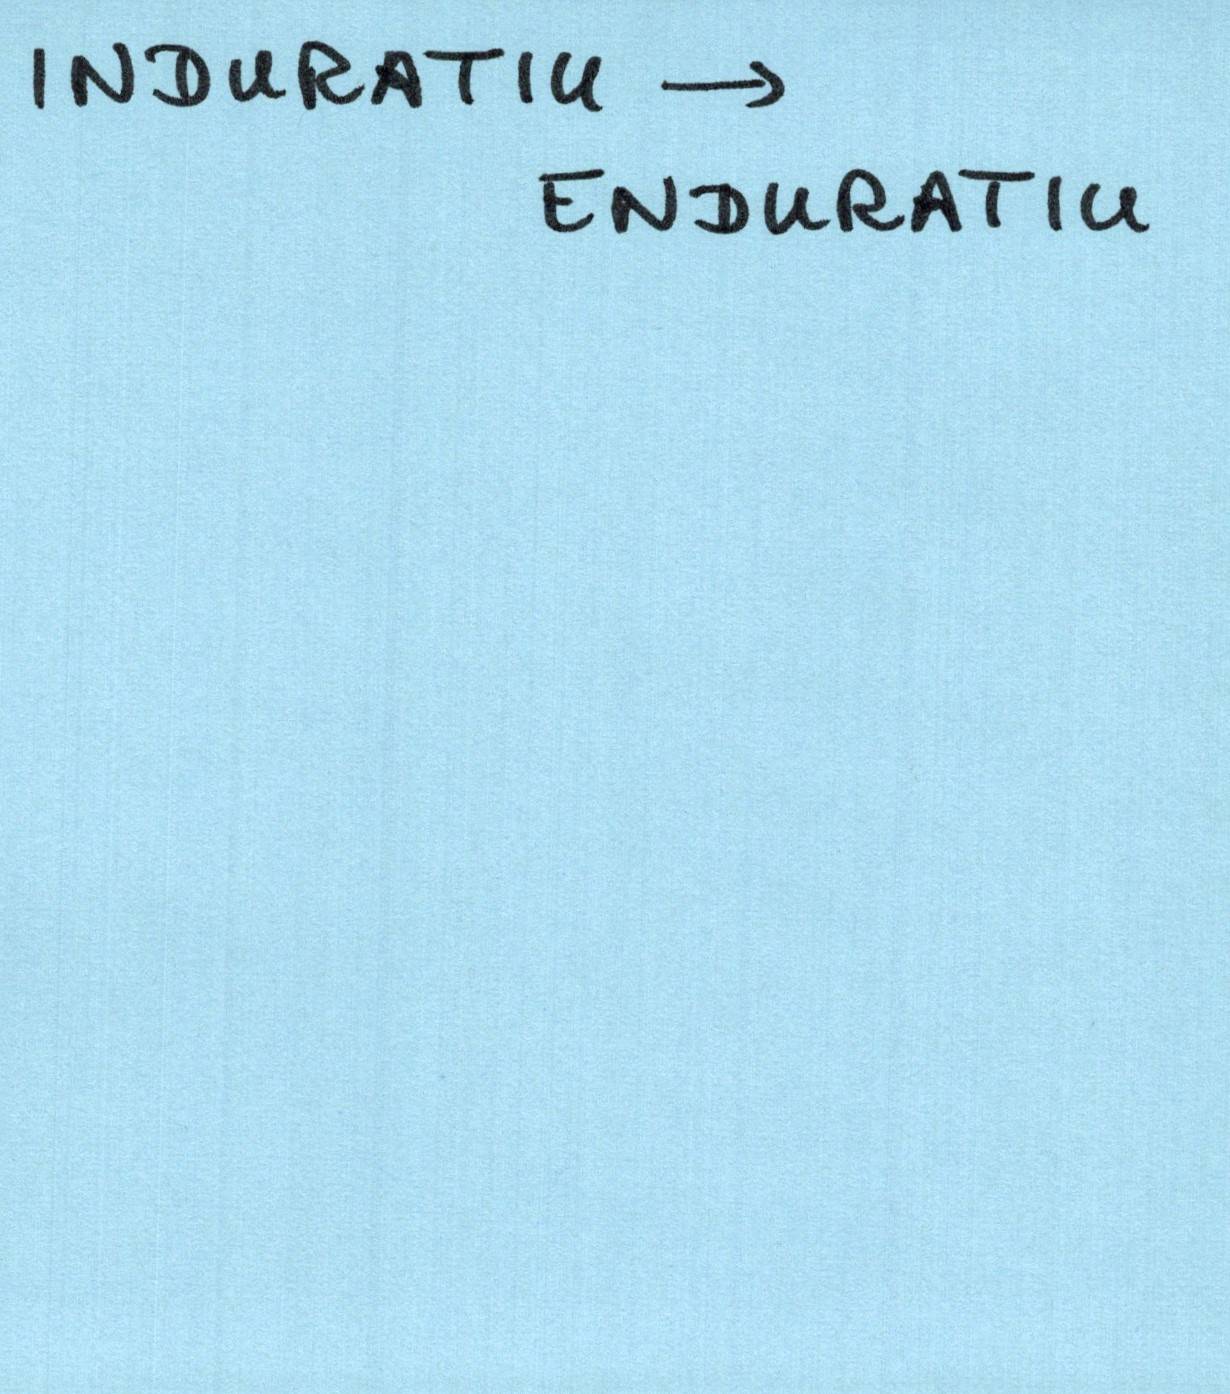 INDURATIU →
ENDURATIU